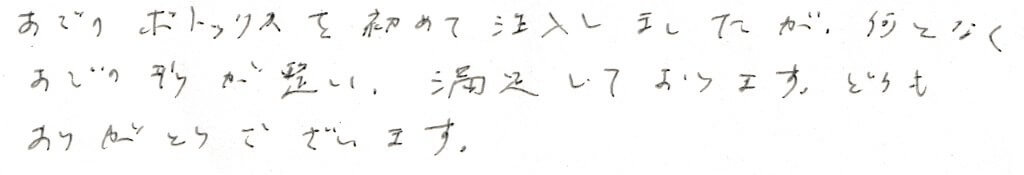 あごのボトックスを初めて注入しましたが、何となく
あごの形が整い、満足しております。どうも
ありがとうございます。